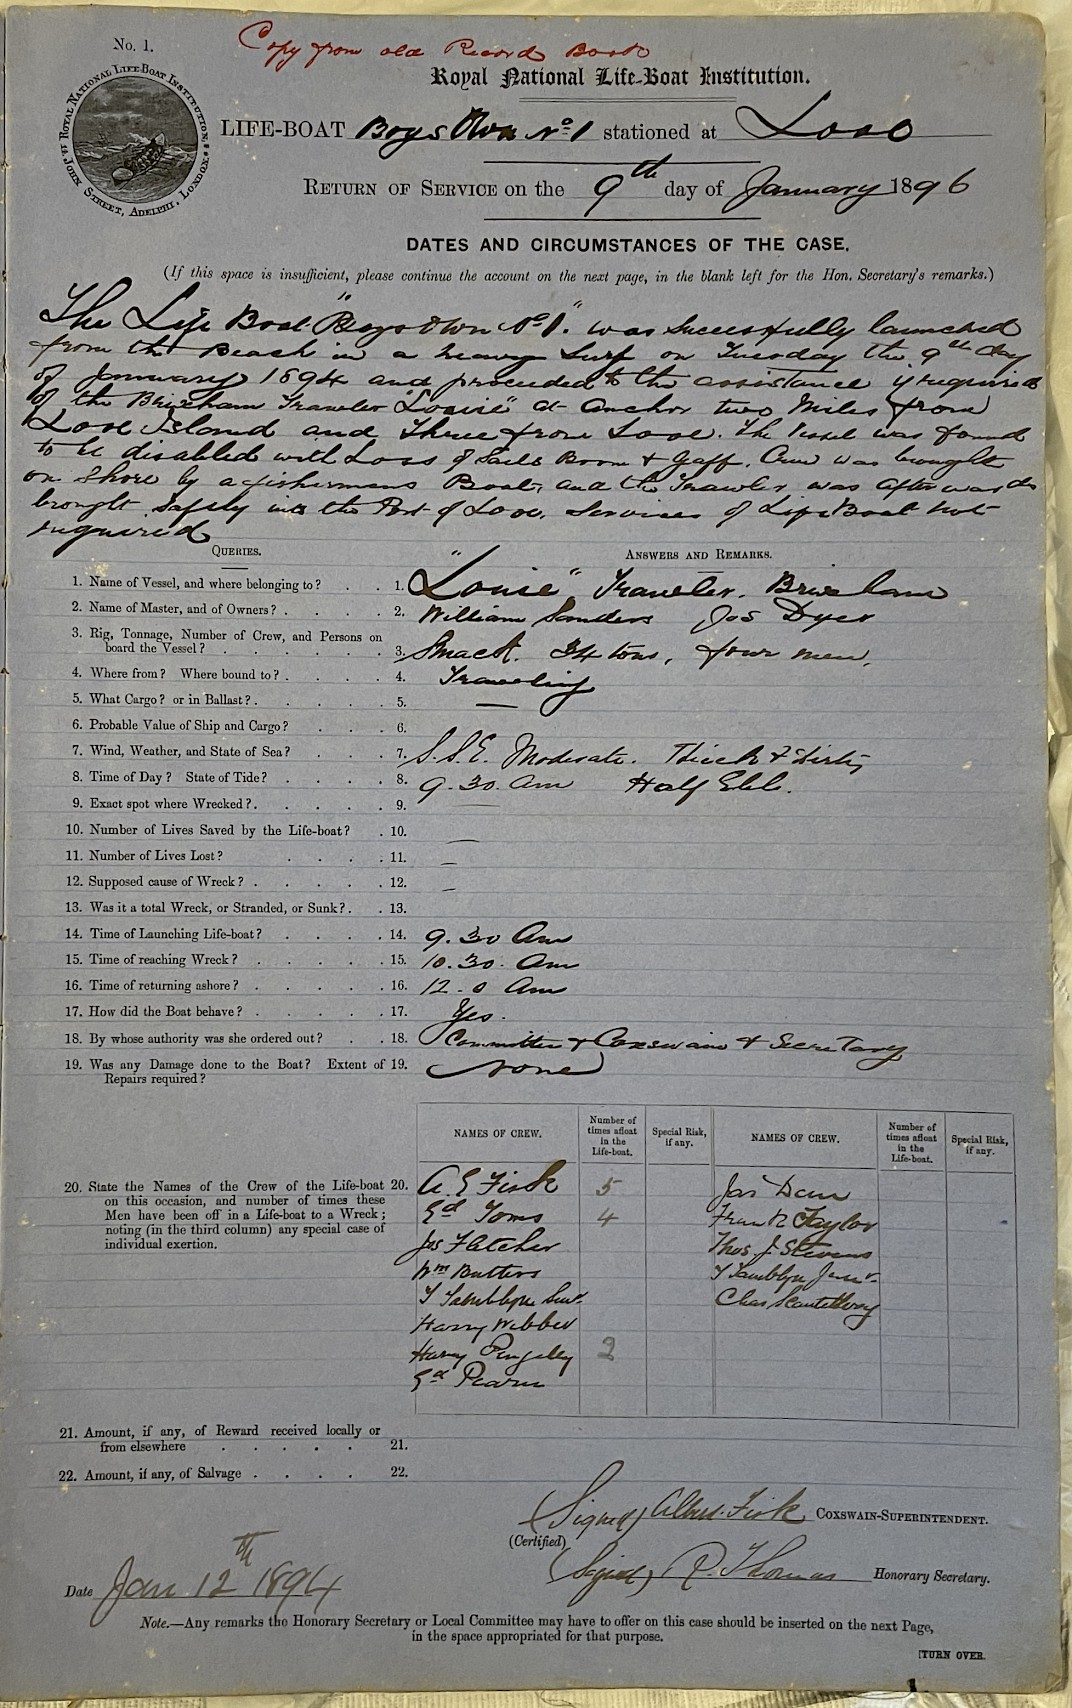 No. 1.
Copy from old Record Book
ROYAL NATIONAL LIFE-BOAT INSTITUTION.
JOHN STREET, ADELPHI, LONDON.
Royal National Life-Boat Institution.
LIFE-BOAT Boys Own No. 1 stationed at Looe
RETURN OF SERVICE on the 9th day of January 1896
DATES AND CIRCUMSTANCES OF THE CASE.
(If this space is insufficient, please continue the account on the next page, in the blank left for the Hon. Secretary's remarks.)
The Life Boat "Boys Own No 1." was Successfully launched
from the Beach in a heavy Surf on Tuesday the 9th day
of January 1894 and proceeded to the assistance if required
of the Brixham Trawler "Louie" at Anchor two Miles from
Looe Island and Three from Looe. The Vessel was found
to be disabled with Loss of Sails Boom & Gaff. Crew was brought
on Shore by a fishermans Boat, and the Trawler was afterwards
brought safely into the Port of Looe. Services of Life Boat not
required
QUERIES. ANSWERS AND REMARKS.
1. Name of Vessel, and where belonging to? 1. "Louie" Trawler. Brixham
2. Name of Master, and of Owners? 2. William Sanders Jos Dyer
3. Rig, Tonnage, Number of Crew, and Persons on
board the Vessel? 3. Smack. 34 tons, four men.
4. Where from? Where bound to? 4. Trawling
5. What Cargo? or in Ballast? 5. —
6. Probable Value of Ship and Cargo? 6.
7. Wind, Weather, and State of Sea? 7. S.S.E. Moderate. Thick & Dirty
8. Time of Day? State of Tide? 8. 9.30. Am Half Ebb.
9. Exact spot where Wrecked? 9. —
10. Number of Lives Saved by the Life-boat? 10. —
11. Number of Lives Lost? 11. —
12. Supposed cause of Wreck? 12. —
13. Was it a total Wreck, or Stranded, or Sunk? 13.
14. Time of Launching Life-boat? 14. 9.30 Am
15. Time of reaching Wreck? 15. 10.30. Am
16. Time of returning ashore? 16. 12.0 Am
17. How did the Boat behave? 17. Yes.
18. By whose authority was she ordered out? 18. Committee & Coxswain & Secretary
19. Was any Damage done to the Boat? Extent of 19. None
Repairs required?
NAMES OF CREW. Number of times afloat in the Life-boat. Special Risk, if any. NAMES OF CREW. Number of times afloat in the Life-boat. Special Risk, if any.
20. State the Names of the Crew of the Life-boat 20.
on this occasion, and number of times these
Men have been off in a Life-boat to a Wreck;
noting (in the third column) any special case of
individual exertion.
A E Fisk 5 Jas Dan
Ed Toms 4 Frank Taylor
Jos Fletcher Thos. J. Stevens
Wm Butters T Tamblyn Junr.
T Tamblyn Senr. Chas
Harry Webber
Harry Pengelly 2
Ed Pearn
21. Amount, if any, of Reward received locally or
from elsewhere 21.
22. Amount, if any, of Salvage 22.
(Signed) Albert Fisk COXSWAIN-SUPERINTENDENT.
(Certified)
(Signed) R. Thomas Honorary Secretary.
Date Jan 12th 1894
Note.—Any remarks the Honorary Secretary or Local Committee may have to offer on this case should be inserted on the next Page,
in the space appropriated for that purpose.
[TURN OVER.